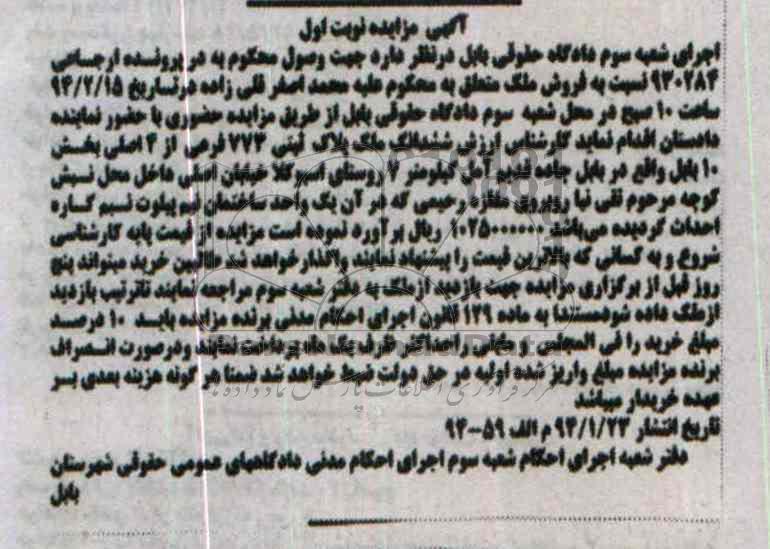 آگهی مزایده نوبت اول
اجرای شعبه سوم دادگاه حقوقی بابل درنظر دارد جهت وصول محکوم به در پرونده ارجاعی
۹۳۰۲۸۴ نسبت به فروش ملک متعلق به محکوم علیه محمد اصغر قلی زاده درتاریخ ۹۴/۲/۱۵
ساعت ۱۰ صبح در محل شعبه سوم دادگاه حقوقی بابل از طریق مزایده حضوری با حضور نماینده
دادستان اقدام نماید کارشناس ارزش ششدانگ ملک پلاک ثبتی ۷۷۳ فرعی از ۴ اصلی بخش
۱۰ بابل واقع در بابل جاده قدیم آمل کیلومتر ۷ روستای اسپوکلا خیابان اصلی داخل محل نبش
کوچه مرحوم تقی نیا روبروی مغازه رحیمی که در آن یک واحد ساختمان نیم پیلوت نیم کاره
احداث گردیده میباشد ۱۰۲۵۰۰۰۰۰۰ ریال برآورد نموده است مزایده از قیمت پایه کارشناسی
شروع و به کسانی که بالاترین قیمت را پیشنهاد نمایند واگذار خواهد شد طالبین خرید میتواند پنج
روز قبل از برگزاری مزایده جهت بازدید ازملک به دفتر شعبه سوم مراجعه نمایند تاترتیب بازدید
ازملک داده شودمستندا به ماده ۱۲۹ قانون اجرای احکام مدنی برنده مزایده باید ۱۰ درصد
مبلغ خرید را فی المجلس و مابقی راحداکثر ظرف یک ماه پرداخت نمایند ودرصورت انصراف
برنده مزایده مبلغ واریز شده اولیه در حق دولت ضبط خواهد شد ضمنا هر گونه هزینه بعدی بر
عهده خریدار میباشد
تاریخ انتشار ۹۴/۱/۲۳ م الف ۵۹-۹۴
دفتر شعبه اجرای احکام شعبه سوم اجرای احکام مدنی دادگاههای عمومی حقوقی شهرستان
بابل